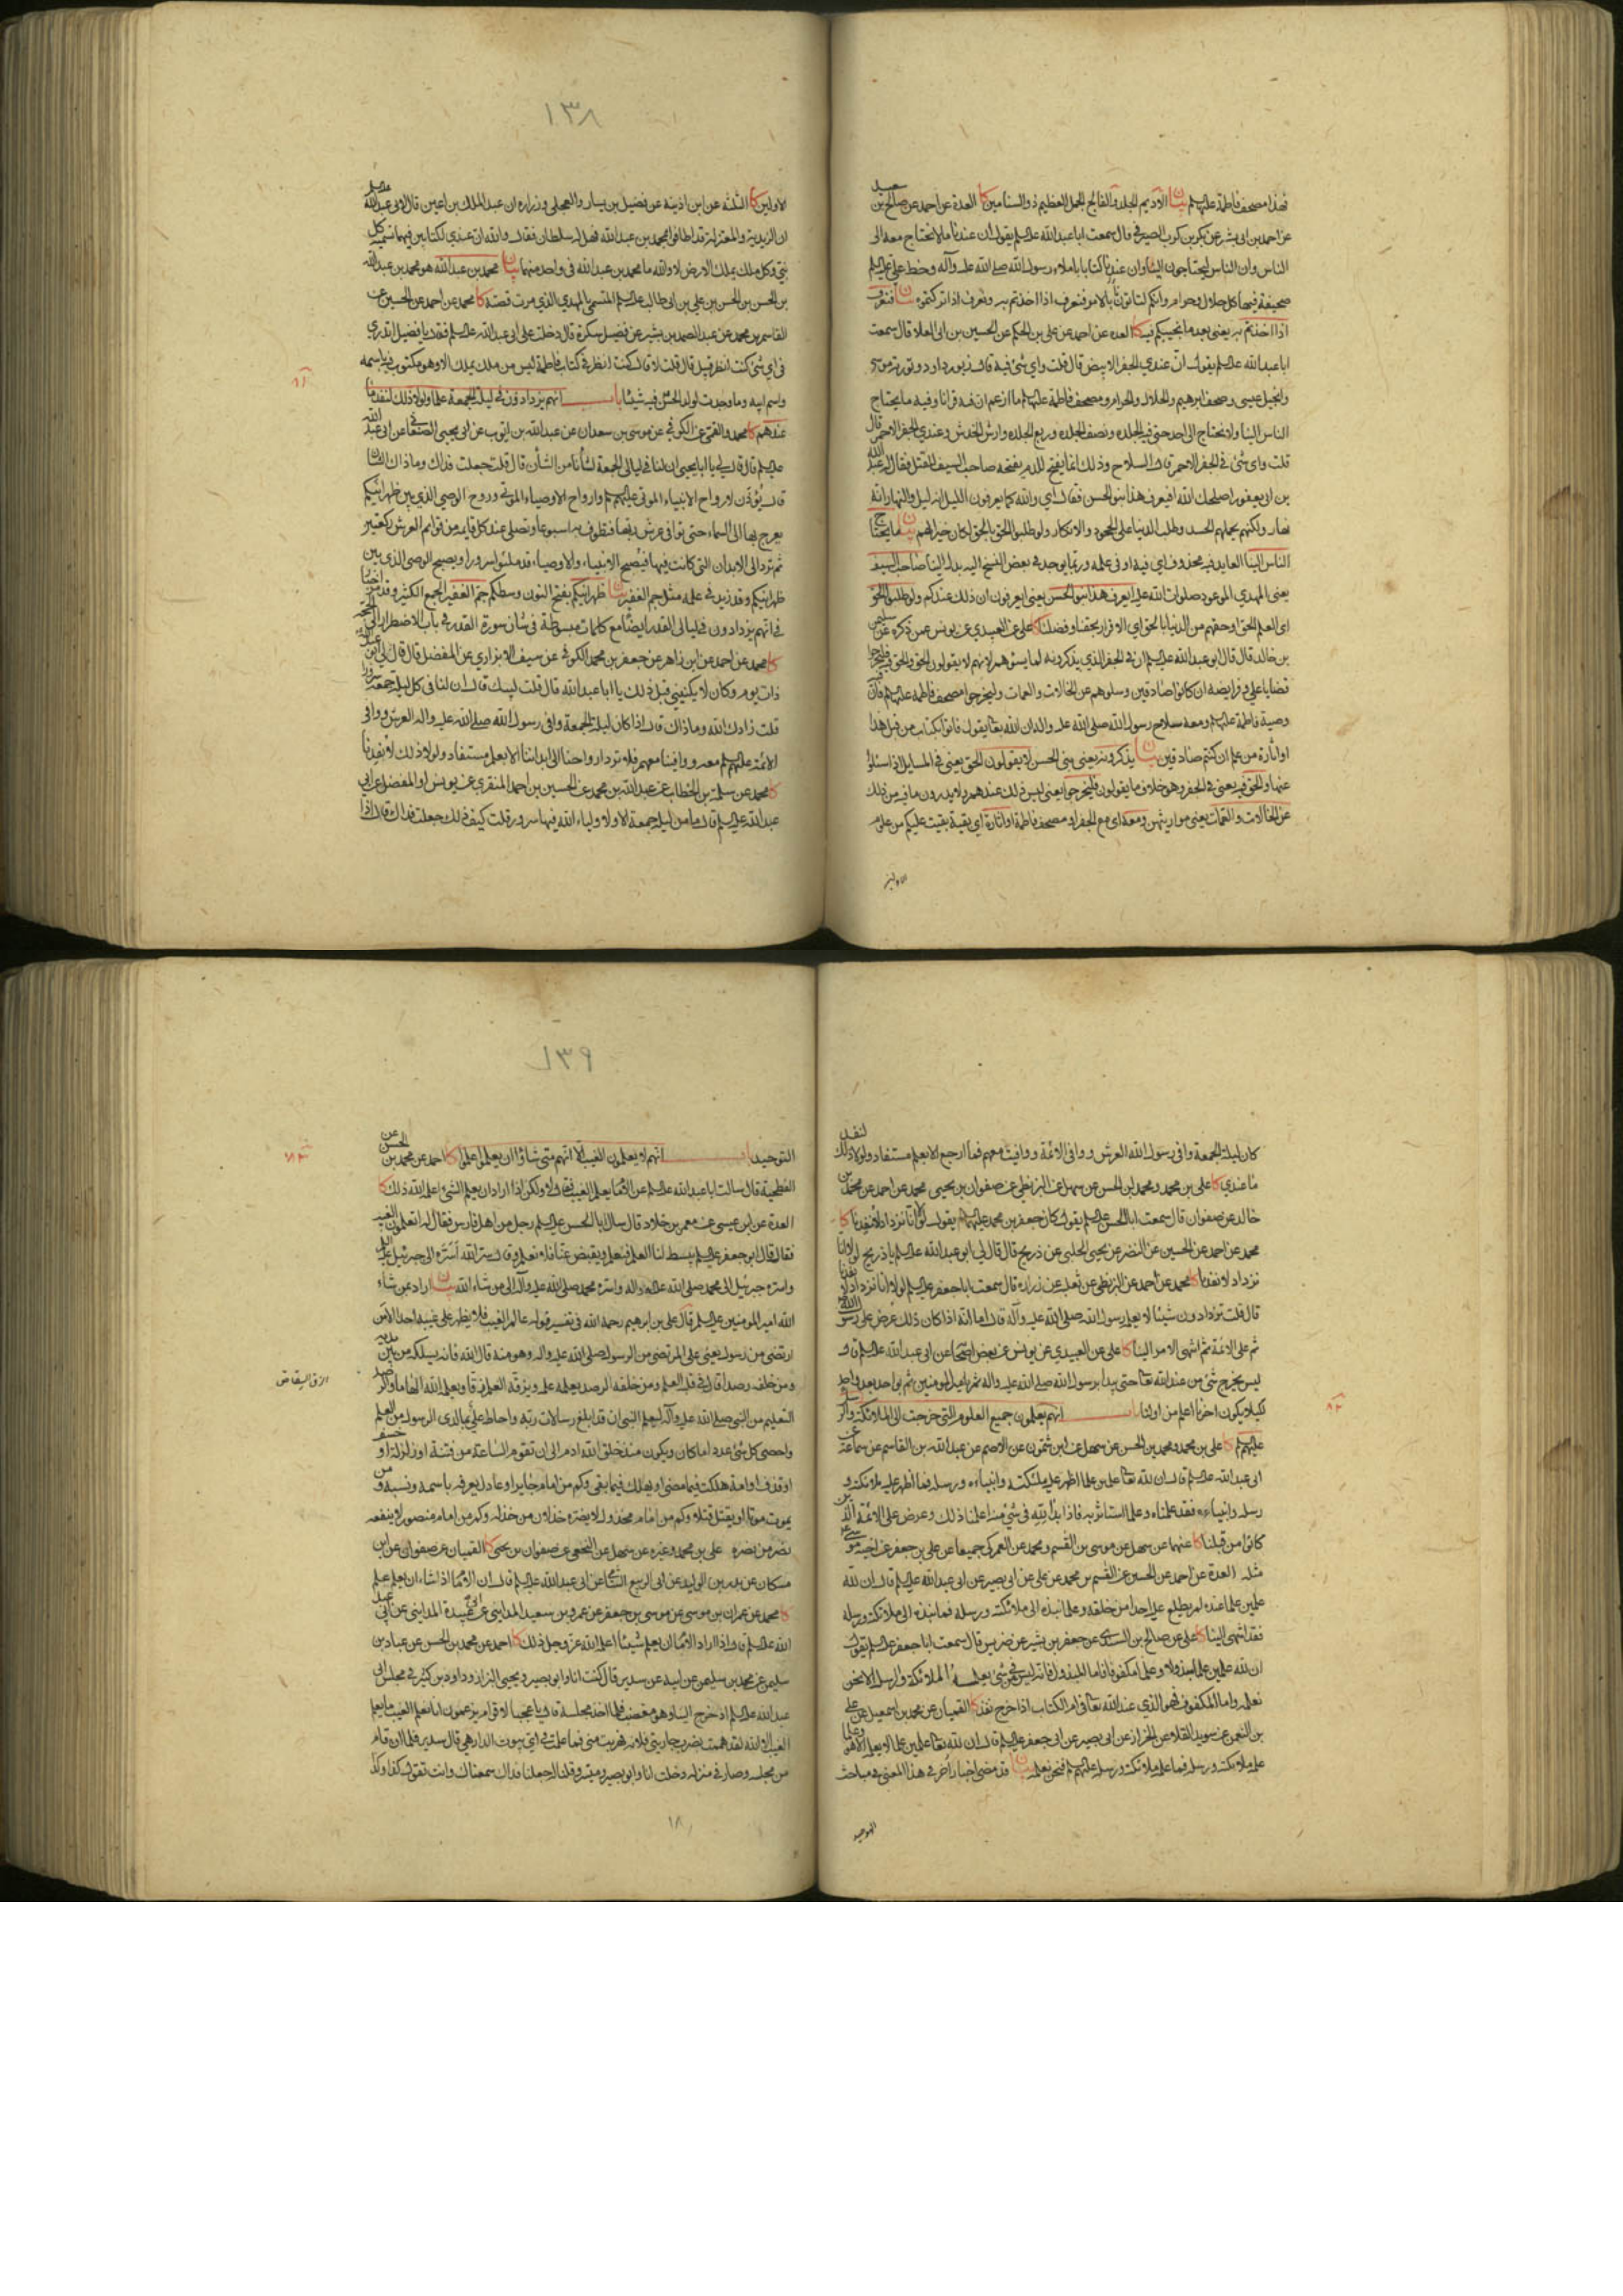 فهذا مصحف فاطمة عليها السلم بيان الاديم الجلد والفالج الجمل العظيم ذو السنامين كا العدة عن احمد عن صالح بن سعيد
عن احمد بن ابى بشر عن بكر بن كرب الصيرفى قال سمعت ابا عبد الله عليه السلم يقول ان عندنا ما لا نحتاج معه الى
الناس وان الناس ليحتاجون الينا وان عندنا كتابا باملاء رسول الله صلى الله عليه وآله وخط على عليه السلم
صحيفة فيها كل حلال وحرام وانكم لتاتونا بالامر فنعرف اذا اخذتم به ونعرف اذا تركتموه بيان فنعرف
اذا اخذتم به يعنى بعد ما نجيبكم فيه كا العدة عن احمد عن على بن الحكم عن الحسين بن ابى العلا قال سمعت
ابا عبد الله عليه السلم يقول ان عندي الجفر الابيض قال قلت واى شئ فيه قال زبور داود وتورية موسى
وانجيل عيسى وصحف ابرهيم والحلال والحرام ومصحف فاطمة عليها السلم ما ازعم ان فيه قرانا وفيه ما يحتاج
الناس الينا ولا نحتاج الى احد حتى فيه الجلده ونصف الجلده وربع الجلده وارش الخدش وعندي الجفر الاحمر قال
قلت واى شئ فى الجفر الاحمر قال السلاح وذلك انما يفتح للدم يفتحه صاحب السيف للقتل فقال له عبد الله
بن ابى يعفور اصلحك الله ايعرف هذا بنو الحسن فقال اى والله كما يعرفون الليل انه ليل والنهار انه
نهار ولكنهم يحملهم الحسد وطلب الدنيا على الجحود والانكار ولو طلبوا الحق بالحق لكان خيرا لهم بيان ما يحتاج
الناس الينا العايد فيه محذوف اى فيه او فى علمه وربما يوجد فى بعض النسخ اليه بدل الينا صاحب السيف
يعنى المهدي الموعود صلوات الله عليه ايعرف هذا بنو الحسن يعنى ايعرفون ان ذلك عندكم ولو طلبوا الحق
اى العلم الحق او حقهم من الدنيا بالحق اى الاقرار بحقنا وفضلنا كا على عن العبيدي عن يونس عمن ذكره عن سليمن
بن خالد قال قال ابو عبد الله عليه السلم ان فى الجفر الذي يذكرونه لما يسوءهم لانهم لا يقولون الحق والحق فيه فليخرجوا
قضايا على وفرايضه ان كانوا صادقين وسلوهم عن الخالات والعمات وليخرجوا مصحف فاطمة عليها السلم فان فيه
وصية فاطمة عليها السلم ومعه سلاح رسول الله صلى الله عليه واله ان الله تعالى يقول فاتوا بكتاب من قبل هذا
او اثارة من علم ان كنتم صادقين بيان يذكرونه يعنى بنى الحسن لا يقولون الحق يعنى فى المسايل اذا سئلوا
عنها والحق فيه يعنى فى الجفر وهو خلاف ما يقولون فليخرجوا يعنى ليس ذلك عندهم ولا يدرون ما فيه من ذلك
عن الخالات والعمات يعنى مواريثهن ومعه اى مع الجفر او مصحف فاطمة او اثارة اى بقية بقيت عليكم من علوم
الاولين
١٣٨
الاولين كا الثلثه عن ابن اذينه عن فضيل بن يسار والعجلى وزراره ان عبد الملك بن اعين قال لابى عبد الله عليه السلم
ان الزيدية والمعتزلة قد اطافوا بمحمد بن عبد الله فهل له سلطان فقال والله ان عندي لكتابين فيهما تسمية كل
نبي وكل ملك يملك الارض لا والله ما محمد بن عبد الله فى واحد منهما بيان محمد بن عبد الله هو محمد بن عبد الله
بن الحسن بن الحسن بن علي بن ابى طالب عليه السلم المتسمى بالمهدي الذي مرت قصته كا محمد عن احمد عن الحسين عن
القاسم بن محمد عن عبد الصمد بن بشير عن فضيل سكرة قال دخلت على ابى عبد الله عليه السلم فقال يا فضيل اتدري
فى اى شئ كنت انظر قبل قال قلت لا قال كنت انظر فى كتاب فاطمة ليس من ملك يملك الا وهو مكتوب فيه باسمه
واسم ابيه وما وجدت لولد الحسن فيه شيئا باب انهم يزدادون فى ليلة الجمعة علما ولولا ذلك لنفد ما
عندهم كا محمد والقمى عن الكوفي عن موسى بن سعدان عن عبد الله بن ايوب عن ابى يحيى الصنعانى عن ابى عبد الله
عليه السلم قال قال لى يا ابا يحيى ان لنا فى ليالى الجمعة لشأنا من الشأن قال قلت جعلت فداك وما ذاك الشان
قال يؤذن لارواح الانبياء الموتى عليهم السلم وارواح الاوصياء الموتى وروح الوصى الذي بين ظهرانيكم
يعرج بها الى السماء حتى توافى عرش ربها فتطوف به اسبوعا وتصلى عند كل قايمه من قوائم العرش ركعتين
ثم ترد الى الابدان التى كانت فيها فتصبح الانبياء والاوصياء قد ملئوا سرورا ويصبح الوصى الذى بين
ظهرانيكم وقد زيد فى علمه مثل جم الغفير بيان ظهرانيكم بفتح النون وسطكم جم الغفير الجمع الكثير وقد مر اخبار
فى انهم يزدادون فى ليالى القدر ايضا مع كلمات مبسوطة فى شان سورة القدر فى باب الاضطرار الى الحجة
كا محمد عن احمد عن ابن زاهر عن جعفر بن محمد الكوفي عن سيف الابزاري عن المفضل قال قال لى ابو عبد الله
ذات يوم وكان لا يكنينى قبل ذلك يا ابا عبد الله قال قلت لبيك قال ان لنا فى كل ليلة جمعة سرورا
قلت زادك الله وما ذاك قال اذا كان ليلة الجمعة وافى رسول الله صلى الله عليه واله العرش ووافى
الائمة عليهم السلم معه ووافينا معهم فلا ترد ارواحنا الى ابداننا الا بعلم مستفاد ولولا ذلك لانفدنا
كا محمد عن سلمة بن الخطاب عن عبد الله بن محمد عن الحسين بن احمد المنقري عن يونس او المفضل عن ابى
عبد الله عليه السلم قال ما من ليلة جمعة الا ولاولياء الله فيها سرور قلت كيف ذلك جعلت فداك قال اذا
كان ليلة الجمعة وافى رسول الله العرش ووافى الائمة ووافيت معهم فما ارجع الا بعلم مستفاد ولولا ذلك لنفد
ما عندي كا على بن محمد ومحمد بن الحسن عن سهل عن البزنطي عن صفوان بن يحيى محمد عن احمد عن محمد بن
خالد عن صفوان قال سمعت ابا الحسن عليه السلم يقول كان جعفر بن محمد عليهما السلم يقول لولا انا نزداد لانفدنا كا
محمد عن احمد عن الحسين عن النضر عن يحيى الحلبى عن ذريح قال قال لى ابو عبد الله عليه السلم يا ذريح لولا انا
نزداد لانفدنا كا محمد عن احمد عن البزنطي عن ثعلبه عن زراره قال سمعت ابا جعفر عليه السلم لولا انا نزداد لانفدنا
قال قلت تزدادون شيئا لا يعلمه رسول الله صلى الله عليه وآله قال اما انه اذا كان ذلك عرض على رسول الله
ثم على الائمة ثم انتهى الامر الينا كا على عن العبيدي عن يونس عن بعض اصحابه عن ابى عبد الله عليه السلم قال
ليس يخرج شئ من عند الله تعالى حتى يبدا برسول الله صلى الله عليه واله ثم بامير المومنين ثم بواحد بعد واحد
لكيلا يكون اخرنا اعلم من اولنا باب انهم يعلمون جميع العلوم التى خرجت الى الملائكة والرسل
عليهم السلم كا على بن محمد ومحمد بن الحسن عن سهل عن ابن شمون عن الاصم عن عبد الله بن القاسم عن سماعة عن
ابى عبد الله عليه السلم قال ان لله تعالى علمين علما اظهر عليه ملئكته وانبياءه ورسله فما اظهر عليه ملائكته و
رسله وانبياءه فقد علمناه وعلما استاثر به فاذا بدا لله فى شئ منه اعلمنا ذلك وعرض على الائمة الذين
كانوا من قبلنا كا عنهما عن سهل عن موسى بن القسم ومحمد عن العمركى جميعا عن على بن جعفر عن اخيه موسى
مثله العدة عن احمد عن الحسين عن القسم بن محمد عن على عن ابى بصير عن ابى عبد الله عليه السلم قال ان لله
علمين علما عنده لم يطلع عليه احدا من خلقه وعلما نبذه الى ملائكته ورسله فما نبذه الى ملائكته ورسله
فقد انتهى الينا كا على عن صالح بن السندي عن جعفر بن بشير عن ضريس قال سمعت ابا جعفر عليه السلم يقول
ان لله علمين علم مبذول وعلم مكفوف فاما المبذول فانه ليس من شئ يعلمه الملائكة والرسل الا نحن
نعلمه واما المكفوف فهو الذي عند الله تعالى فى ام الكتاب اذا خرج نفذ كا القميان عن محمد بن اسمعيل عن على
بن النعمن عن سويد القلا عن الخزاز عن ابى بصير عن ابى جعفر عليه السلم قال ان لله تعالى علمين علم لا يعلمه الا هو وعلما
علمه ملائكته ورسله فما علمه ملائكته ورسله عليهم السلم فنحن نعلمه بيان قد مضى اخبار اخر فى هذا المعنى فى مباحث
التوحيد
١٣٩
التوحيد باب انهم لا يعلمون الغيب الا انهم متى شاؤا ان يعلموا علموا كا احمد عن محمد بن الحسن عن
الفطحية قال سالت ابا عبد الله عليه السلم عن الامام يعلم الغيب فقال لا ولكن اذا اراد ان يعلم الشئ اعلمه الله ذلك كا
العدة عن ابن عيسى عن معمر بن خلاد قال سال ابا الحسن عليه السلم رجل من اهل فارس فقال له اتعلمون الغيب
فقال قال ابو جعفر عليه السلم يبسط لنا العلم فنعلم ويقبض عنا فلا نعلم وقال سر الله اسره الى جبرئيل عليه السلم
واسره جبرئيل الى محمد صلى الله عليه واله واسره محمد صلى الله عليه وآله الى من شاء الله بيان اراد بمن شاء
الله امير المومنين عليه السلم قال على بن ابرهيم رحمه الله فى تفسير قوله عالم الغيب فلا يظهر على غيبه احدا الا من
ارتضى من رسول يعنى على المرتضى من الرسول صلى الله عليه واله وهو منه قال الله فانه يسلك من بين يديه
ومن خلفه رصدا قال فى قلبه العلم ومن خلفه الرصد يعلمه علمه ويزقه العلم زقا ويعلمه الله الهاما والرصد
التعليم من النبى صلى الله عليه وآله ليعلم النبى ان قد ابلغ رسالات ربه واحاط على بما لدى الرسول من العلم
واحصى كل شئ عددا ما كان ويكون منذ خلق الله ادم الى ان تقوم الساعة من فتنة او زلزلة او خسف
او قذف او امة هلكت فيما مضى او تهلك فيما بقى وكم من امام جاير او عادل يعرفه باسمه ونسبه ومن
يموت موتا او يقتل قتلا وكم من امام مخذول لا يضره خذلان من خذله وكم من امام منصور لا ينفعه
نصر من نصره على بن محمد وغيره عن سهل عن النخعى عن صفوان بن يحيى كا القميان عن صفوان عن ابن
مسكان عن بدر بن الوليد عن ابى الربيع الشامى عن ابى عبد الله عليه السلم قال ان الامام اذا شاء ان يعلم علم
كا محمد عن عمران بن موسى عن موسى بن جعفر عن عمرو بن سعيد المدايني عن ابى عبيدة المدايني عن ابى عبد
الله عليه السلم قال اذا اراد الامام ان يعلم شيئا اعلمه الله عز وجل ذلك كا احمد عن محمد بن الحسن عن عباد بن
سليمن عن محمد بن سليمن عن ابيه عن سدير قال كنت انا وابو بصير ويحيى البزاز وداود بن كثير فى مجلس ابى
عبد الله عليه السلم اذ خرج الينا وهو مغضب فلما اخذ مجلسه قال يا عجبا لاقوام يزعمون انا نعلم الغيب ما يعلم
الغيب الا الله لقد هممت بضرب جاريتى فلانه فهربت منى فما علمت فى اى بيوت الدار هي قال سدير فلما ان قام
من مجلسه وصار فى منزله دخلت انا وابو بصير وميسر وقلنا له جعلنا فداك سمعناك وانت تقول كذا وكذا